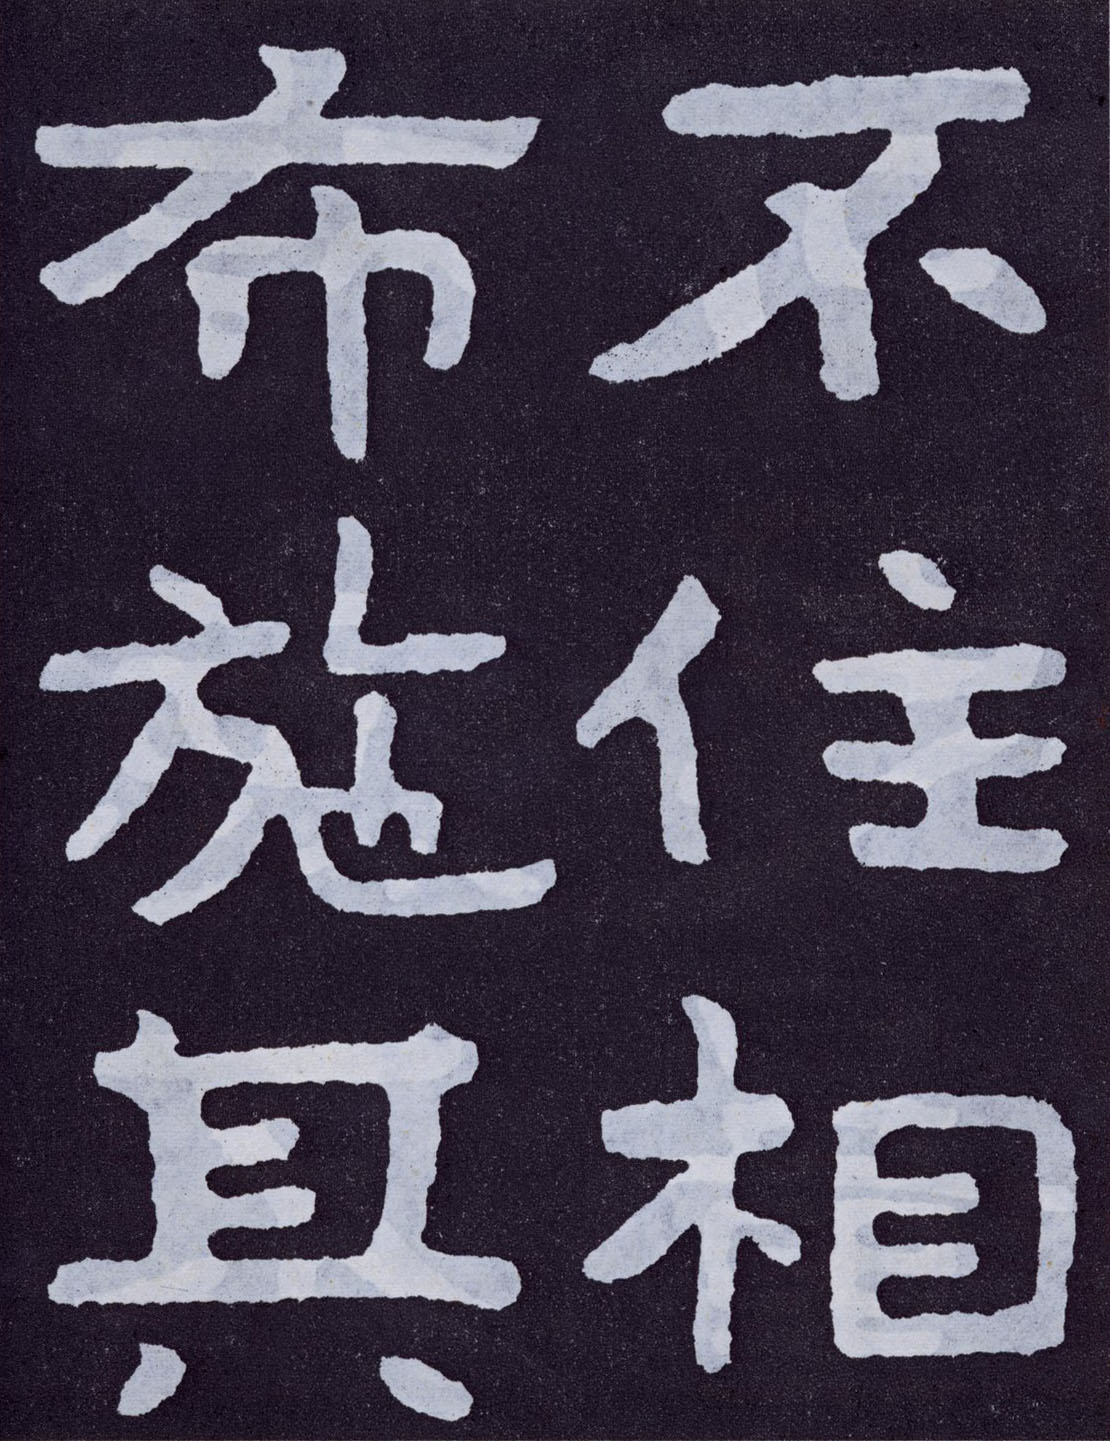 不住相
布施其